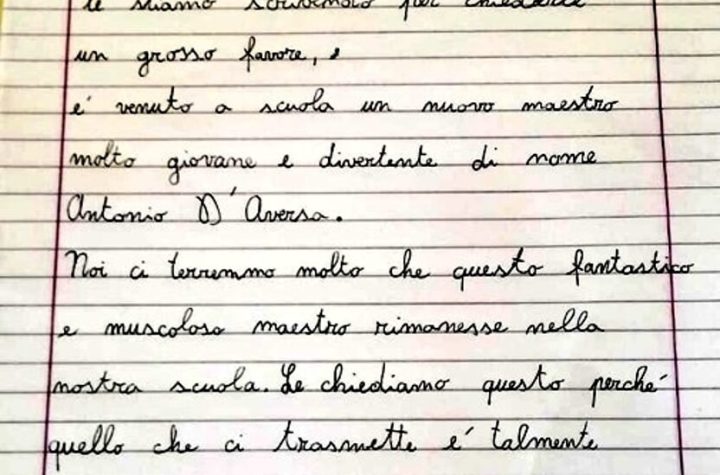 le stiamo scrivendo per chiedere
un grosso favore, e
e' venuto a scuola un nuovo maestro
molto giovane e divertente di nome
Antonio D'Aversa.
Noi ci terremmo molto che questo fantastico
e muscoloso maestro rimanesse nella
nostra scuola. Le chiediamo questo perche'
quello che ci trasmette e' talmente